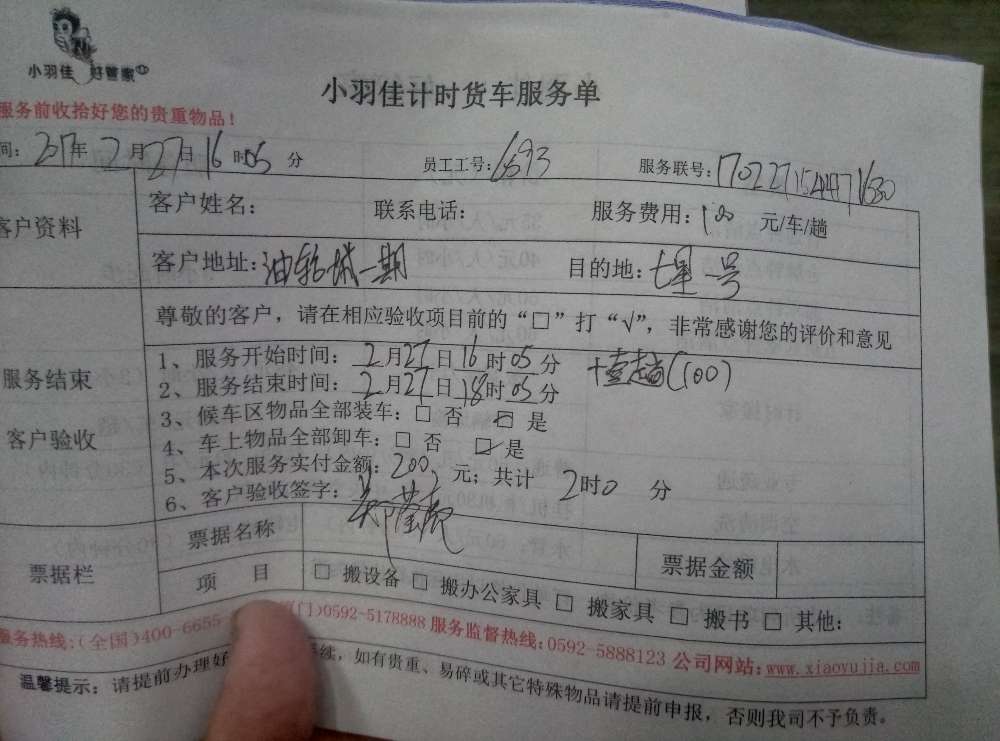 小羽佳 好管家
小羽佳计时货车服务单
服务前收拾好您的贵重物品!
间: 2017年 2月27日16时05分 员工工号: 6693 服务联号: 170227154471680
客户资料 客户姓名: 联系电话: 服务费用: 100 元/车/趟
客户地址: 一期 目的地: 七星一号
尊敬的客户，请在相应验收项目前的“□”打“√”，非常感谢您的评价和意见
服务结束
客户验收
1、服务开始时间: 2月27日16时05分 +壹趟(100)
2、服务结束时间: 2月27日18时05分
3、候车区物品全部装车: □ 否 ☑ 是
4、车上物品全部卸车: □ 否 ☑ 是
5、本次服务实付金额: 200 元; 共计 2时0 分
6、客户验收签字:
票据栏 票据名称 票据金额
项 目 □ 搬设备 □ 搬办公家具 □ 搬家具 □ 搬书 □ 其他:
服务热线:(全国)400-6655 门)0592-5178888 服务监督热线:0592-5888123 公司网站:www.xiaoyujia.com
温馨提示: 请提前办理好 续，如有贵重、易碎或其它特殊物品请提前申报，否则我司不予负责。